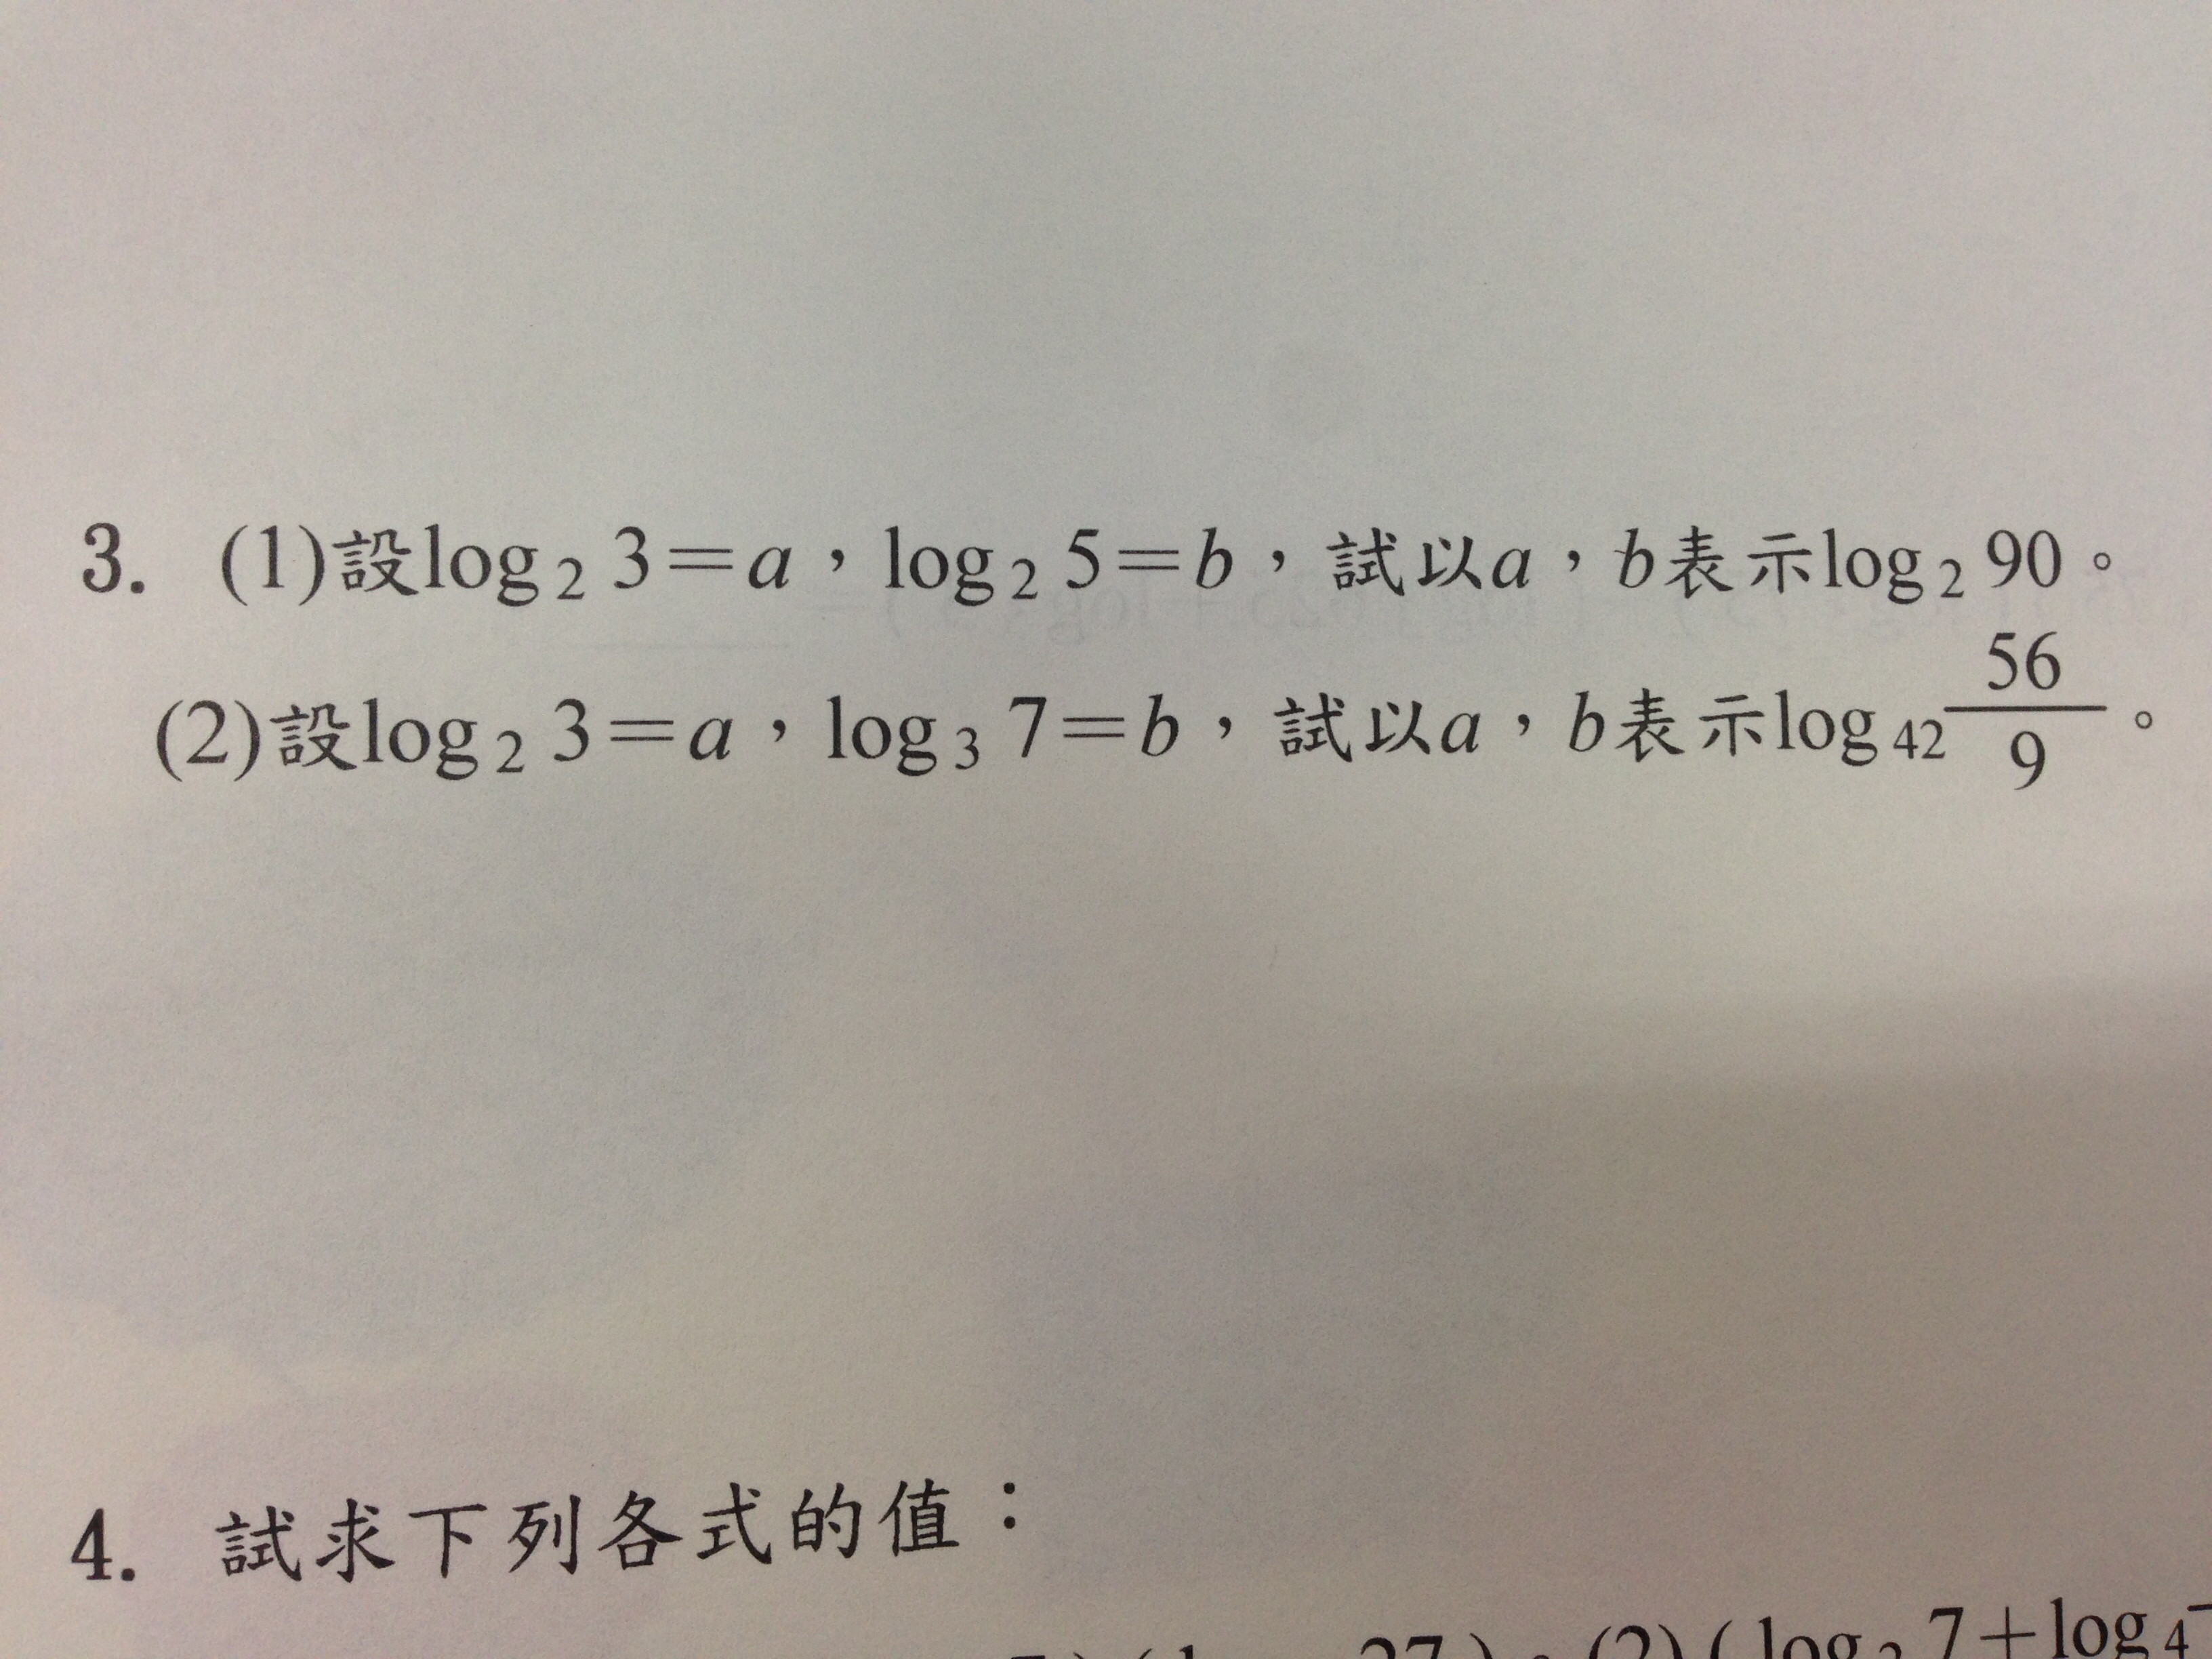 3. (1)設log₂ 3=a,log₂ 5=b,試以a,b表示log₂ 90。
(2)設log₂ 3=a,log₃ 7=b,試以a,b表示log₄₂ 56/9。
4. 試求下列各式的值:
27)。(2)(log₂ 7+log₄